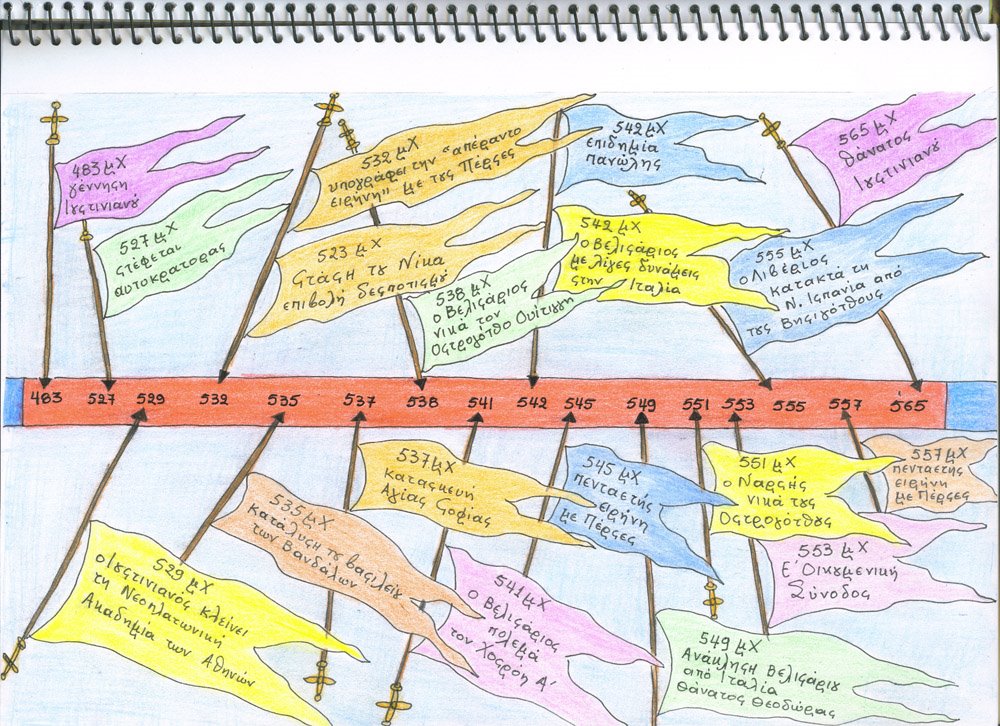 483 μΧ
γέννηση
Ιουστινιανού
527 μΧ
στέφεται
αυτοκράτορας
532 μΧ
υπογράφει την "απέραντο
ειρήνη" με τους Πέρσες
523 μΧ
Στάση του Νίκα
επιβολή δεσποτισμού
538 μΧ
ο Βελισάριος
νικά τον
Οστρογότθο Ουίτιγη
542 μΧ
επιδημία
πανώλης
542 μΧ
ο Βελισάριος
με λίγες δυνάμεις
στην Ιταλία
555 μΧ
ο Λιβέριος
κατακτά τη
Ν. Ισπανία από
τους Βησιγότθους
565 μΧ
θάνατος
Ιουστινιανού
483 527 529 532 535 537 538 541 542 545 549 551 553 555 557 565
529 μΧ
ο Ιουστινιανός κλείνει
τη Νεοπλατωνική
Ακαδημία των Αθηνών
535 μΧ
κατάλυση του βασιλείου
των Βανδάλων
537 μΧ
κατασκευή
Αγίας Σοφίας
541 μΧ
ο Βελισάριος
πολεμά
τον Χοσρόη Α'
545 μΧ
πενταετής
ειρήνη
με Πέρσες
549 μΧ
Ανάκληση Βελισάριου
από Ιταλία
θάνατος Θεοδώρας
551 μΧ
ο Ναρσής
νικά τους
Οστρογότθους
553 μΧ
Ε' Οικουμενική
Σύνοδος
557 μΧ
πενταετής
ειρήνη
με Πέρσες